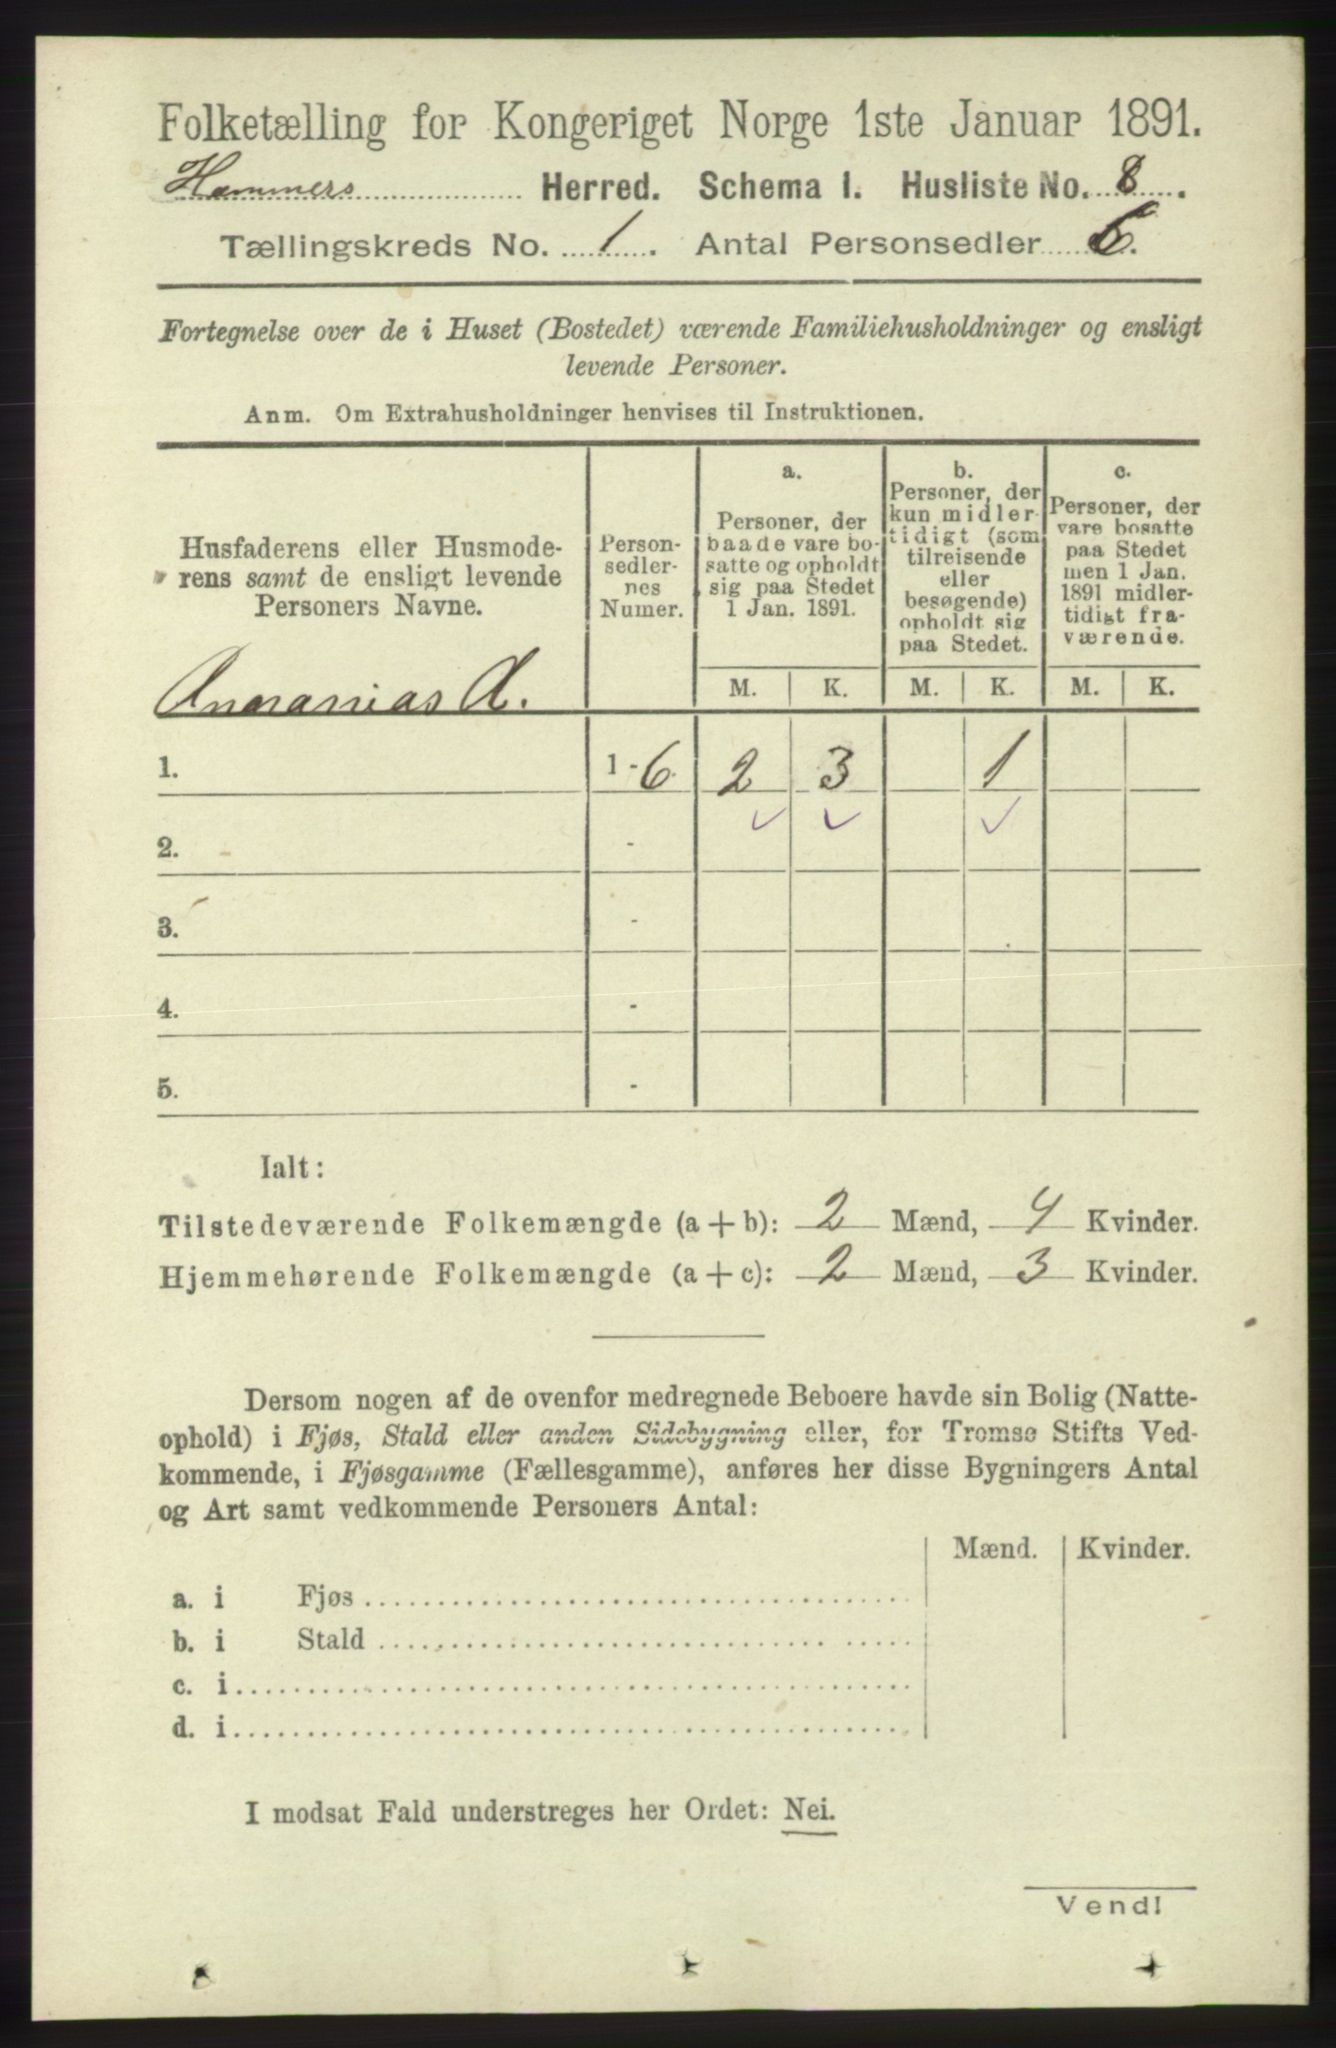 Folketælling for Kongeriget Norge 1ste Januar 1891.
Hammers Herred. Schema I. Husliste No. 8.
Tællingskreds No. 1. Antal Personsedler 6.
Fortegnelse over de i Huset (Bostedet) værende Familiehusholdninger og ensligt
levende Personer.
Anm. Om Extrahusholdninger henvises til Instruktionen.
Husfaderens eller Husmode-
rens samt de ensligt levende
Personers Navne.
Person-
sedler-
nes
Numer.
a.
Personer, der
baade vare bo-
satte og opholdt
sig paa Stedet
1 Jan. 1891.
b.
Personer, der
kun midler-
tidigt (som
tilreisende
eller
besøgende)
opholdt sig
paa Stedet.
c.
Personer, der
vare bosatte
paa Stedet
men 1 Jan.
1891 midler-
tidigt fra-
værende.
M. K. M. K. M. K.
Annanias A.
1. 1 - 6 2 3 1
2. -
3. -
4. -
5. -
Ialt:
Tilstedeværende Folkemængde (a + b): 2 Mænd, 4 Kvinder.
Hjemmehørende Folkemængde (a + c): 2 Mænd, 3 Kvinder.
Dersom nogen af de ovenfor medregnede Beboere havde sin Bolig (Natte-
ophold) i Fjøs, Stald eller anden Sidebygning eller, for Tromsø Stifts Ved-
kommende, i Fjøsgamme (Fællesgamme), anføres her disse Bygningers Antal
og Art samt vedkommende Personers Antal:
Mænd. Kvinder.
a. i Fjøs
b. i Stald
c. i
d. i
I modsat Fald understreges her Ordet: Nei.
Vend!